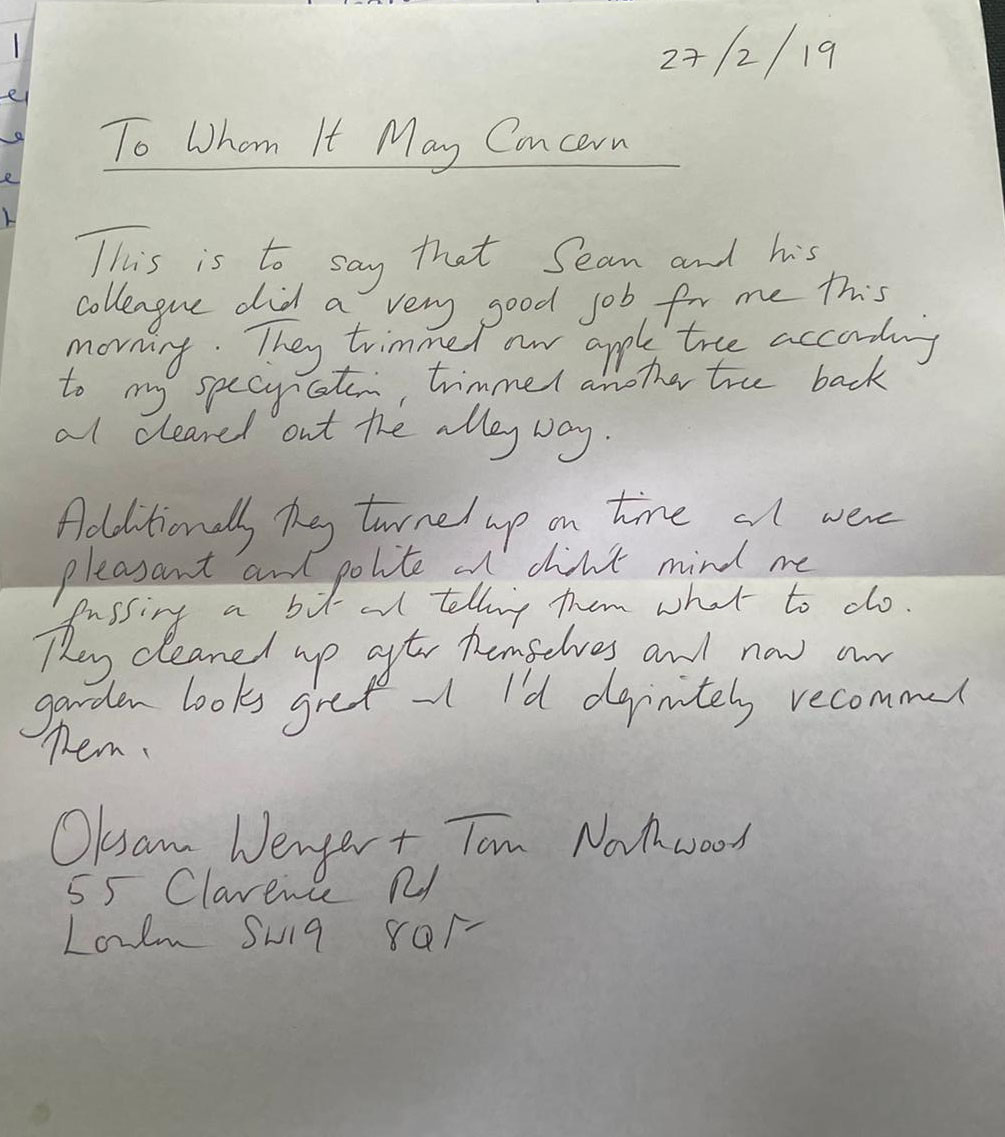 27/2/19
To Whom It May Concern
This is to say that Sean and his
colleague did a very good job for me this
morning. They trimmed our apple tree according
to my specification, trimmed another tree back
and cleared out the alleyway.
Additionally they turned up on time and were
pleasant and polite and didn't mind me
fussing a bit and telling them what to do.
They cleaned up after themselves and now our
garden looks great and I'd definitely recommend
them.
Oksana Wenger + Tom Northwood
55 Clarence Rd
London SW19 8QF